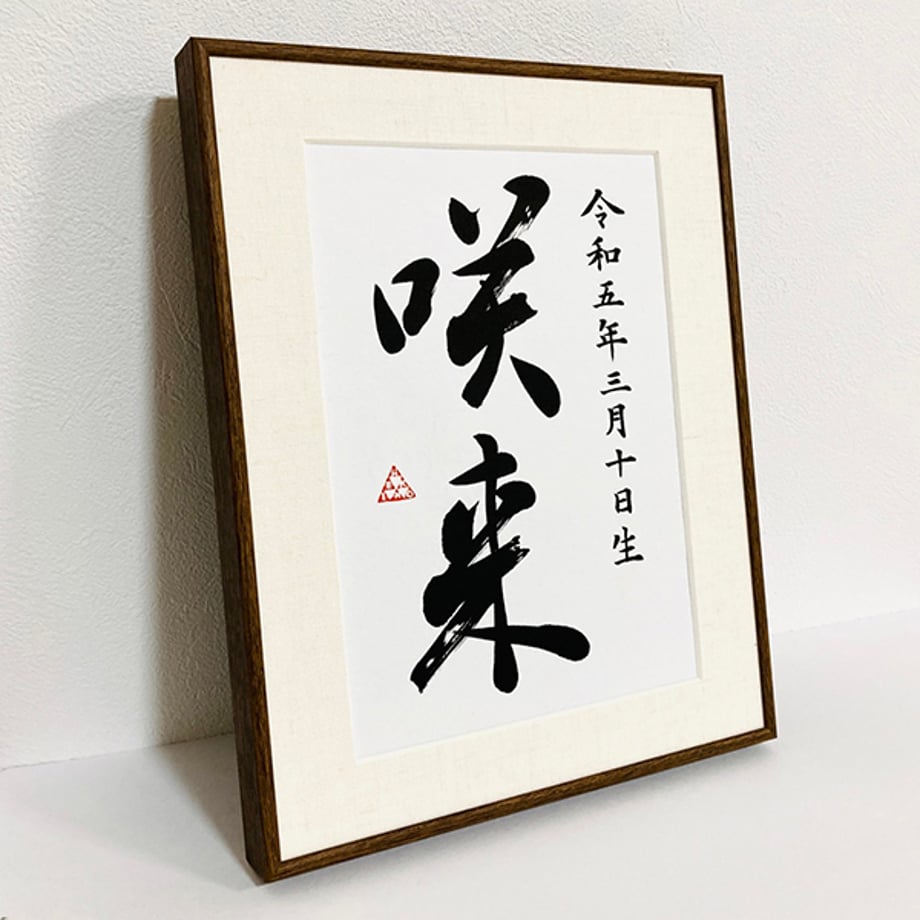 令和五年三月十日生
咲来